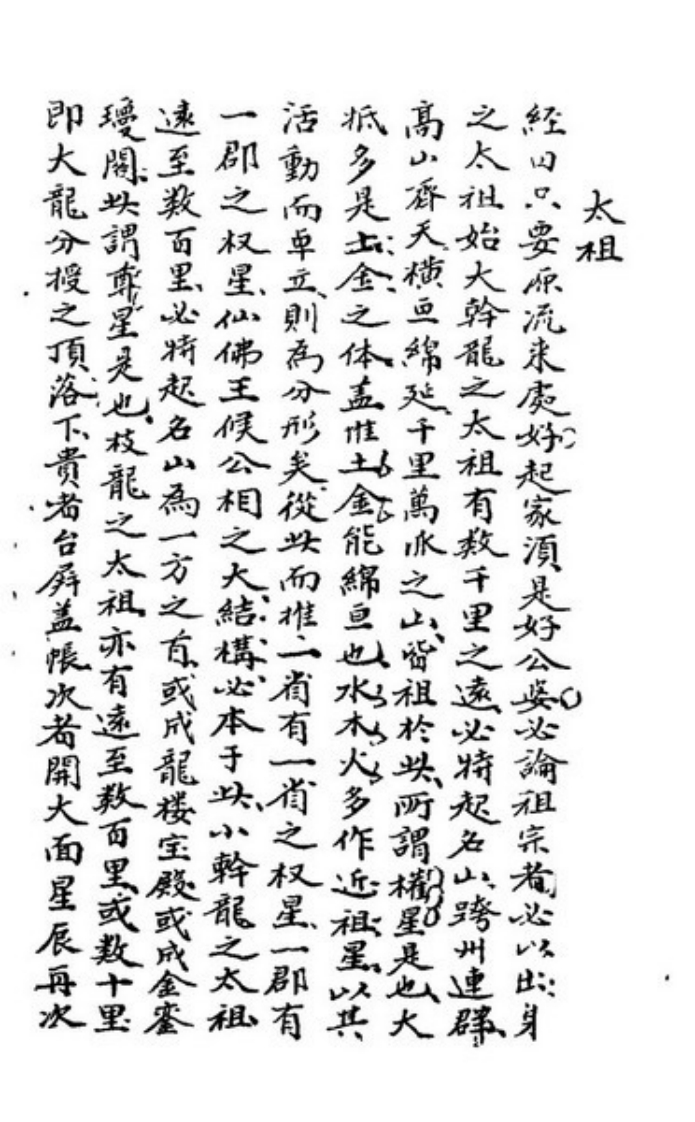 太祖
経曰只要原流来處好起家湏是好公婆必論祖宗者必以出身
之太祖始大幹龍之太祖有数千里之遠必特起名山跨州連群
高山齊天橫亘綿延千里萬派之山皆祖於此所謂權星是也大
抵多是土金之体盖惟土金能綿亘也水木火多作近祖星以其
活動而卓立則為分形矣從此而推一省有一省之权星一郡有
一郡之权星仙佛王候公相之大結構必本于此小幹龍之太祖
遠至数百里必特起名山為一方之首或成龍楼宝殿或成金鑾
瓊閣此謂尊星是也枝龍之太祖亦有遠至数百里或数十里
即大龍分授之頂落下貴者台屏盖帳次者開大面星辰再次